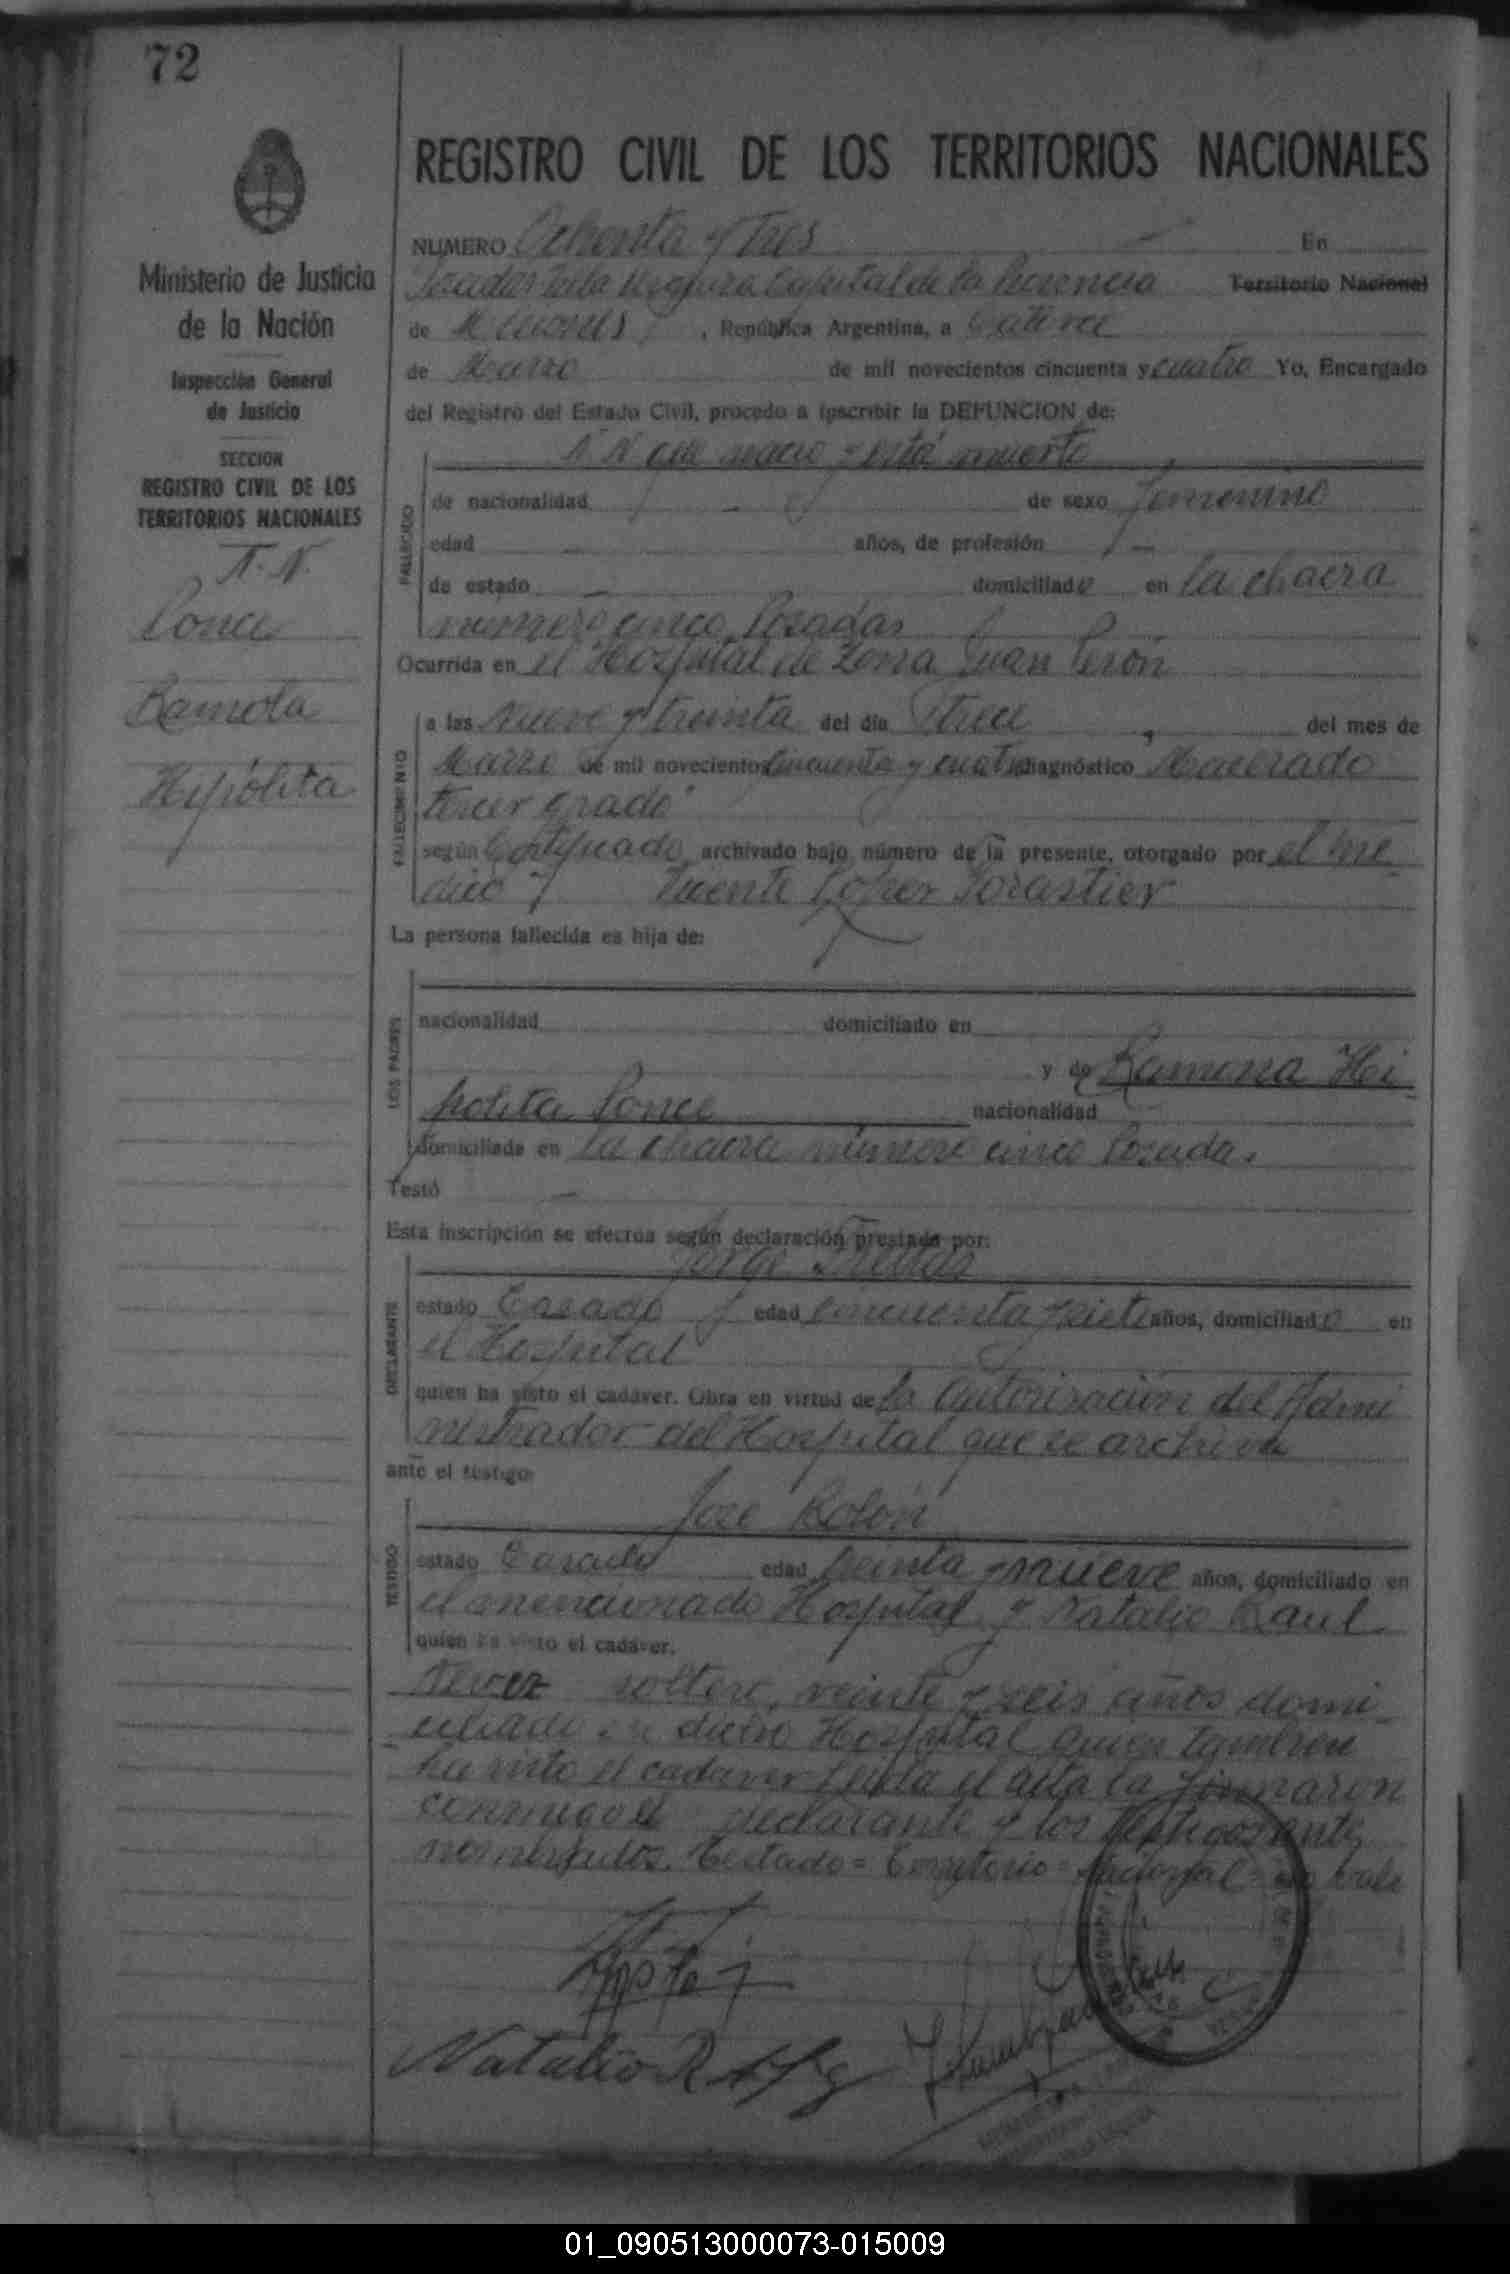 72
REGISTRO CIVIL DE LOS TERRITORIOS NACIONALES
Ministerio de Justicia
de la Nación
Inspección General
de Justicia
SECCION
REGISTRO CIVIL DE LOS
TERRITORIOS NACIONALES
N. N.
Ponce
Ramona
Hipólita
NUMERO Ochenta y Tres En
Posadas Villa Capital de la Provincia Territorio Nacional
de Misiones, República Argentina, a Catorce
de Marzo de mil novecientos cincuenta y cuatro Yo, Encargado
del Registro del Estado Civil, procedo a inscribir la DEFUNCION de:
N N que nacio y está muerto
FALLECIDO
de nacionalidad de sexo femenino
edad años, de profesión
de estado domiciliado en la chacra
numero cinco Posadas
Ocurrida en el Hospital de Zona Juan Perón
FALLECIMIENTO
a las Nueve y treinta del día Trece del mes de
Marzo de mil novecientos cincuenta y cuatro diagnóstico Macerado
tercer grado
según Certificado archivado bajo número de la presente, otorgado por el me
dico Vicente López Forastier
La persona fallecida es hija de:
LOS PADRES
nacionalidad domiciliado en
y de Ramona Hi
polita Ponce nacionalidad
domiciliada en la chacra número cinco Posadas
Testó
Esta inscripción se efectúa según declaración prestada por:
Jorge
DECLARANTE
estado Casado edad cincuenta y siete años, domiciliado en
el Hospital
quien ha visto el cadáver. Obra en virtud de la autorización del Admi
nistrador del Hospital que se archiva
ante el testigo:
José Rolón
TESTIGO
estado Casado edad treinta y nueve años, domiciliado en
el mencionado Hospital y Natalio Raul
quien ha visto el cadáver.
soltero, veinte y seis años domi
ciliado en dicho Hospital quien tambien
ha visto el cadaver Leida el acta la firmaron
conmigo el declarante y los testigos ante
nombrados. Testado = Territorio = Nacional = no vale
Natalio R
01_090513000073-015009